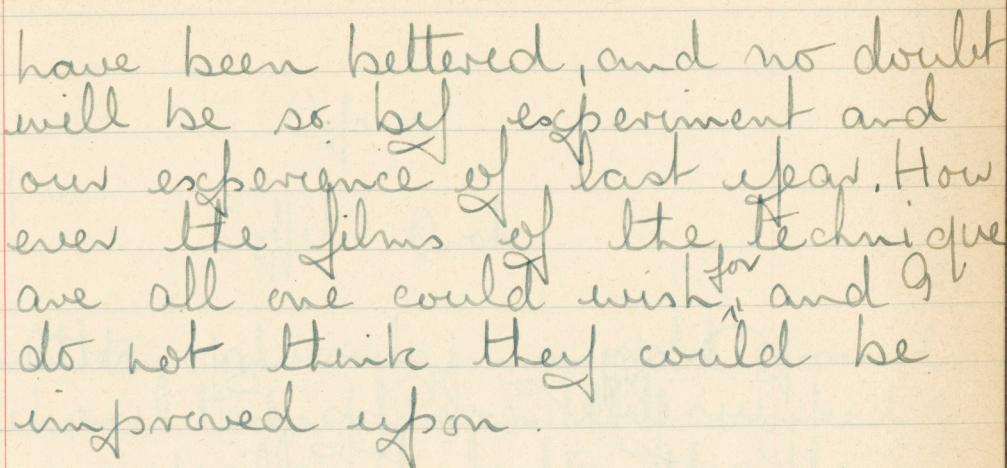 have been bettered, and no doubt
will be so by experiment and
our experience of last year. How
ever the films of the technique
are all one could wish for, and I
do not think they could be
improved upon.